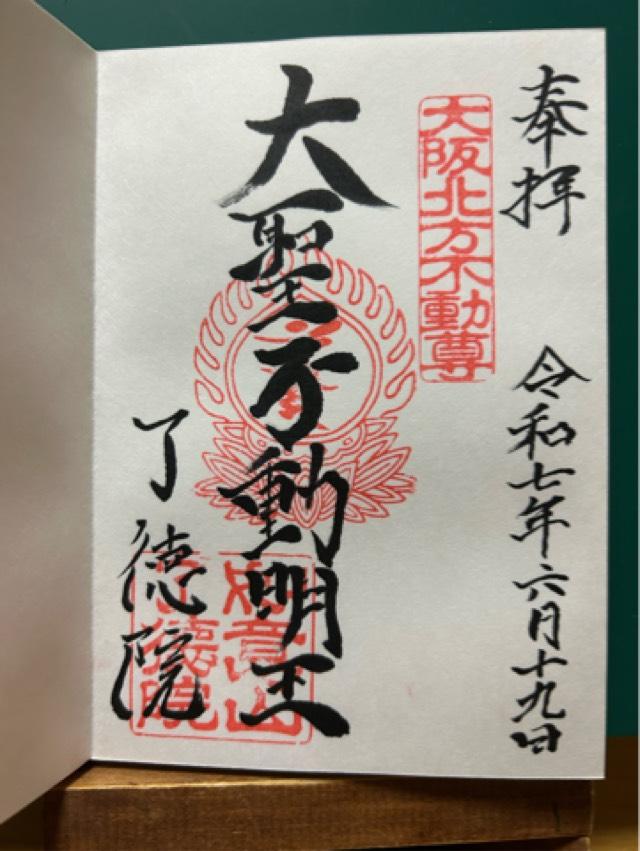 奉拝
令和七年六月十九日
大阪北方不動尊
大聖不動明王
了徳院
如意山
了徳院